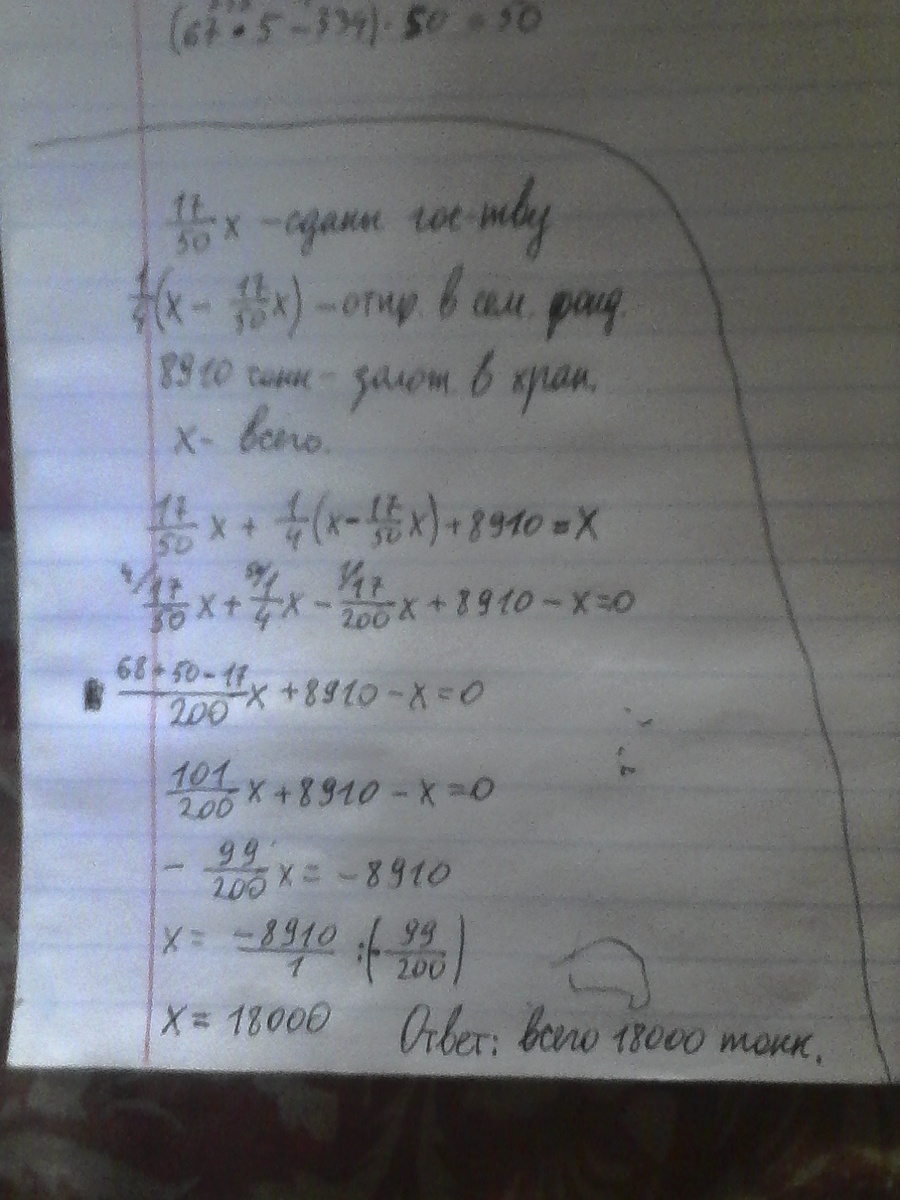 (67·5-334)·50=50
17/50 x - сданы гос-тву
1/4(x - 17/50 x) - отпр. в сем. фонд.
8910 тонн - в хран.
x - всего.
17/50 x + 1/4(x - 17/50 x) + 8910 = x
4/ 17/50 x + 50/ 1/4 x - 1/ 17/200 x + 8910 - x = 0
68+50-17/200 x + 8910 - x = 0
101/200 x + 8910 - x = 0
- 99/200 x = -8910
x = -8910/1 :(-99/200)
x = 18000 Ответ: всего 18000 тонн.